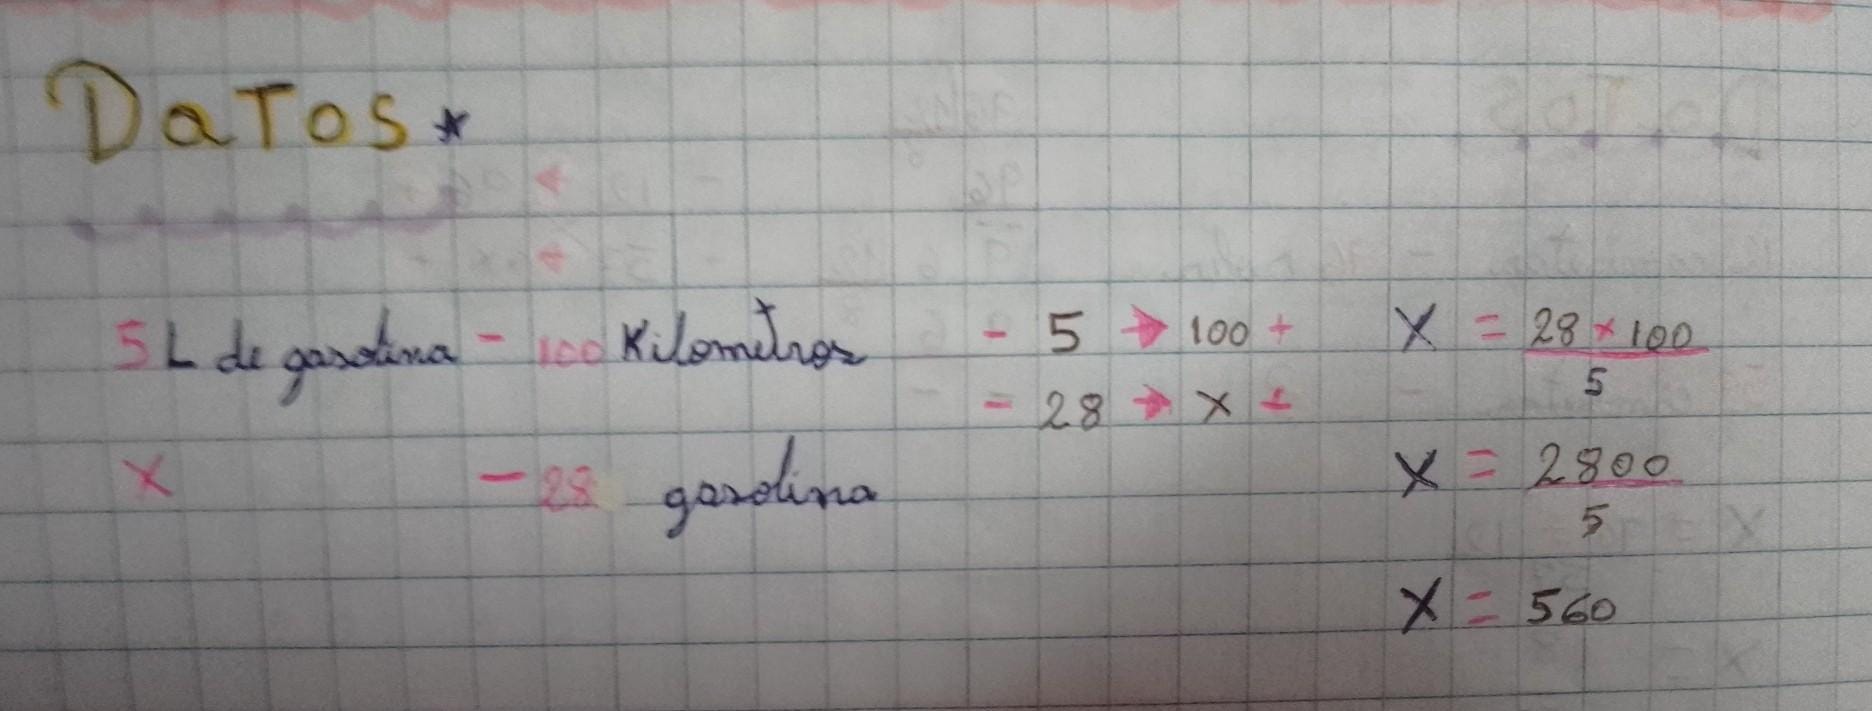 DaTos *
5 L de gasolina - 100 Kilometros - 5 → 100 + X = 28 x 100
5
= 28 → x ±
X - 28 gasolina X = 2800
5
X = 560